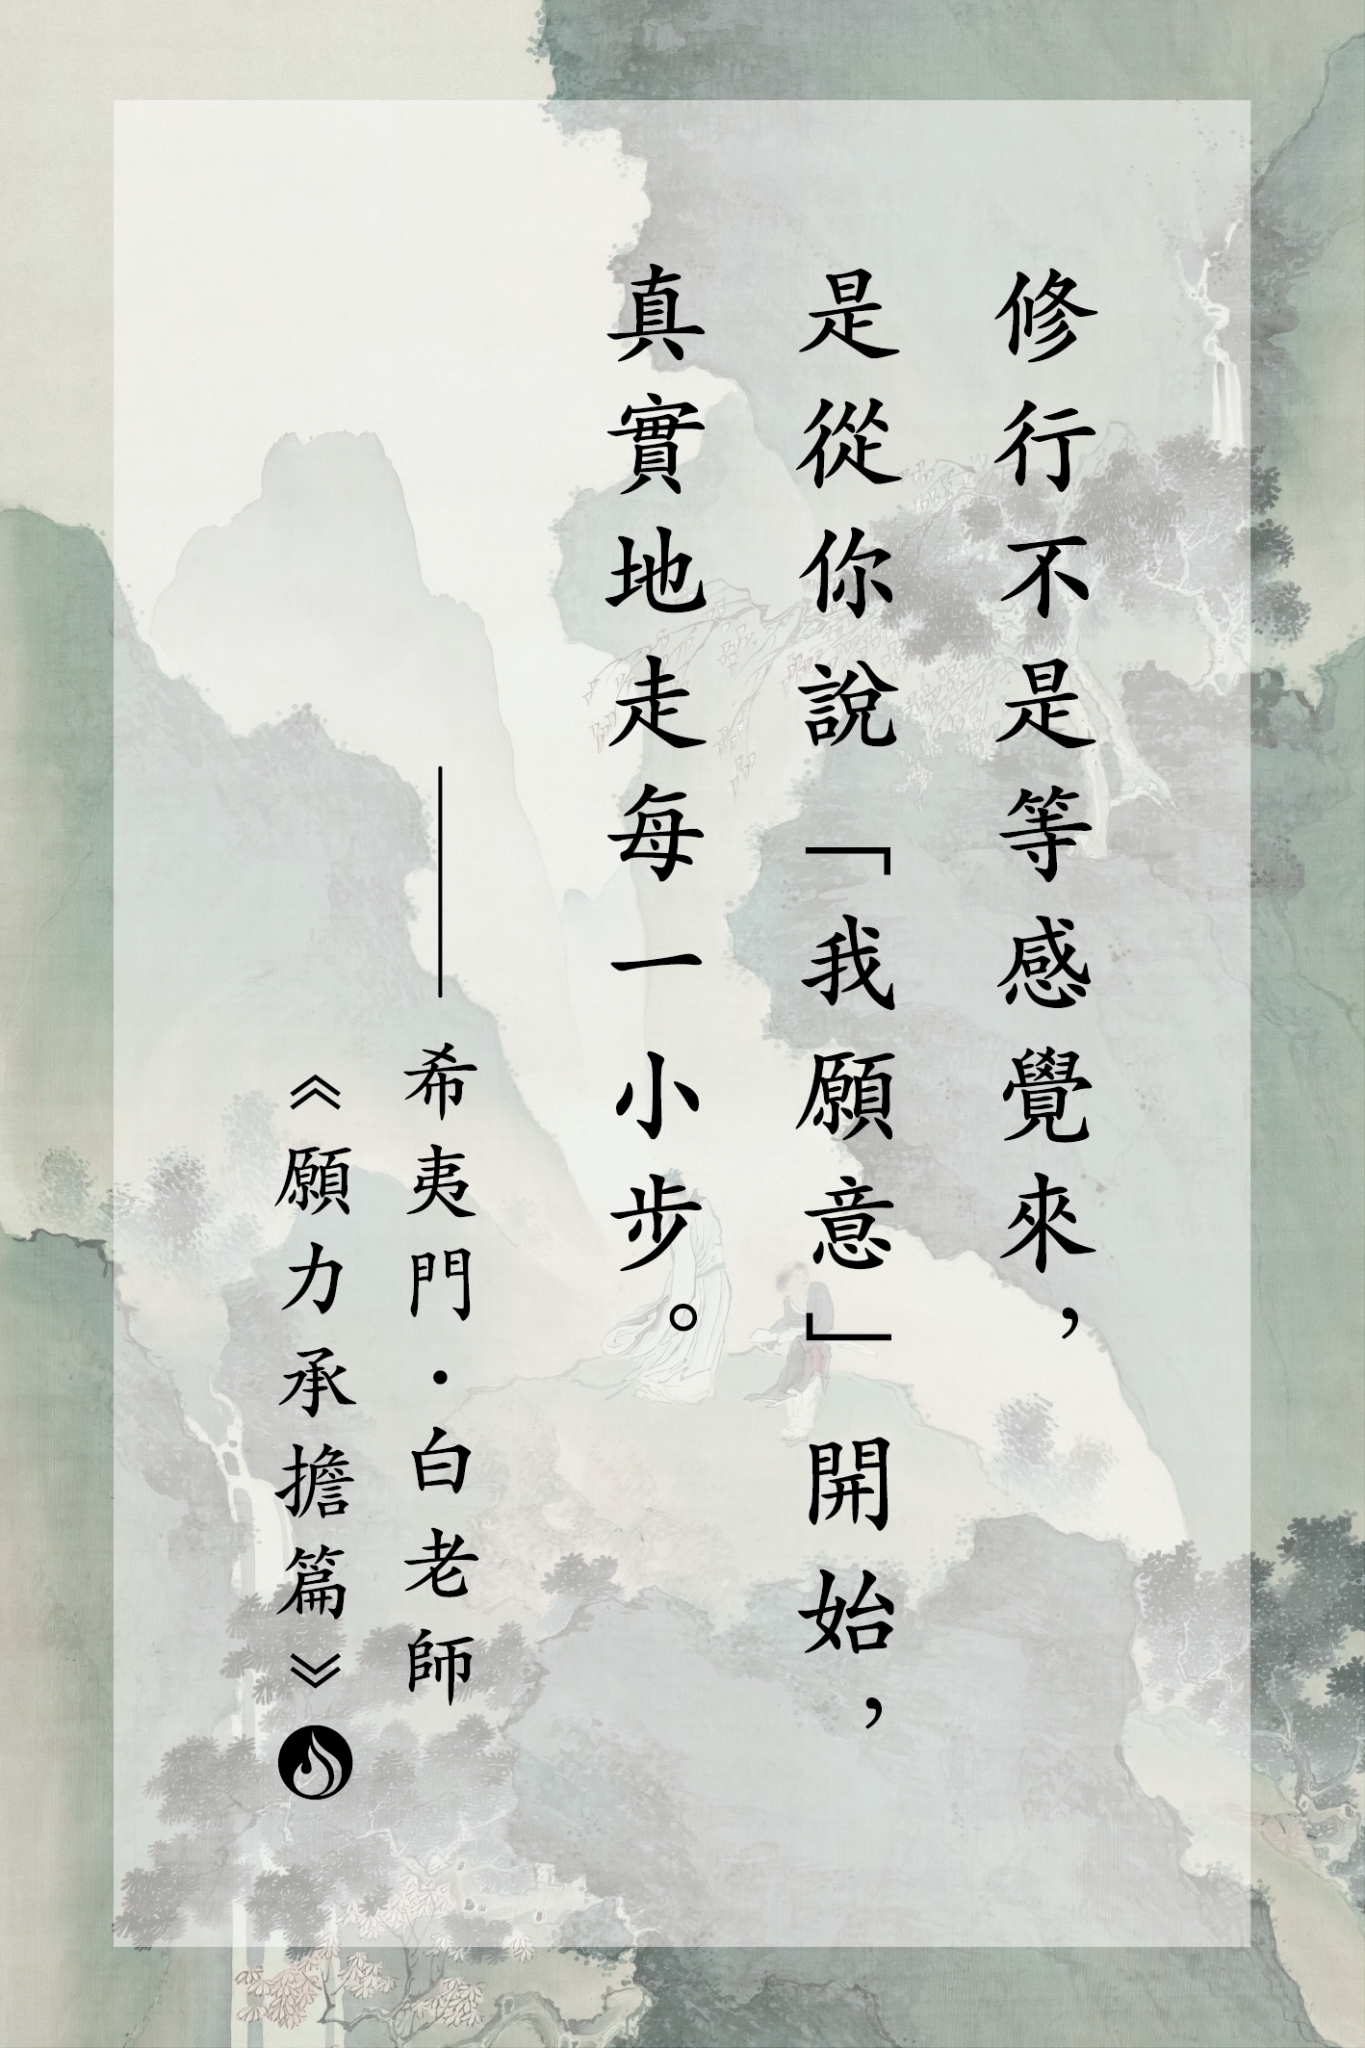 修行不是等感覺來，
是從你說「我願意」開始，
真實地走每一小步。
——希夷門·白老師
《願力承擔篇》